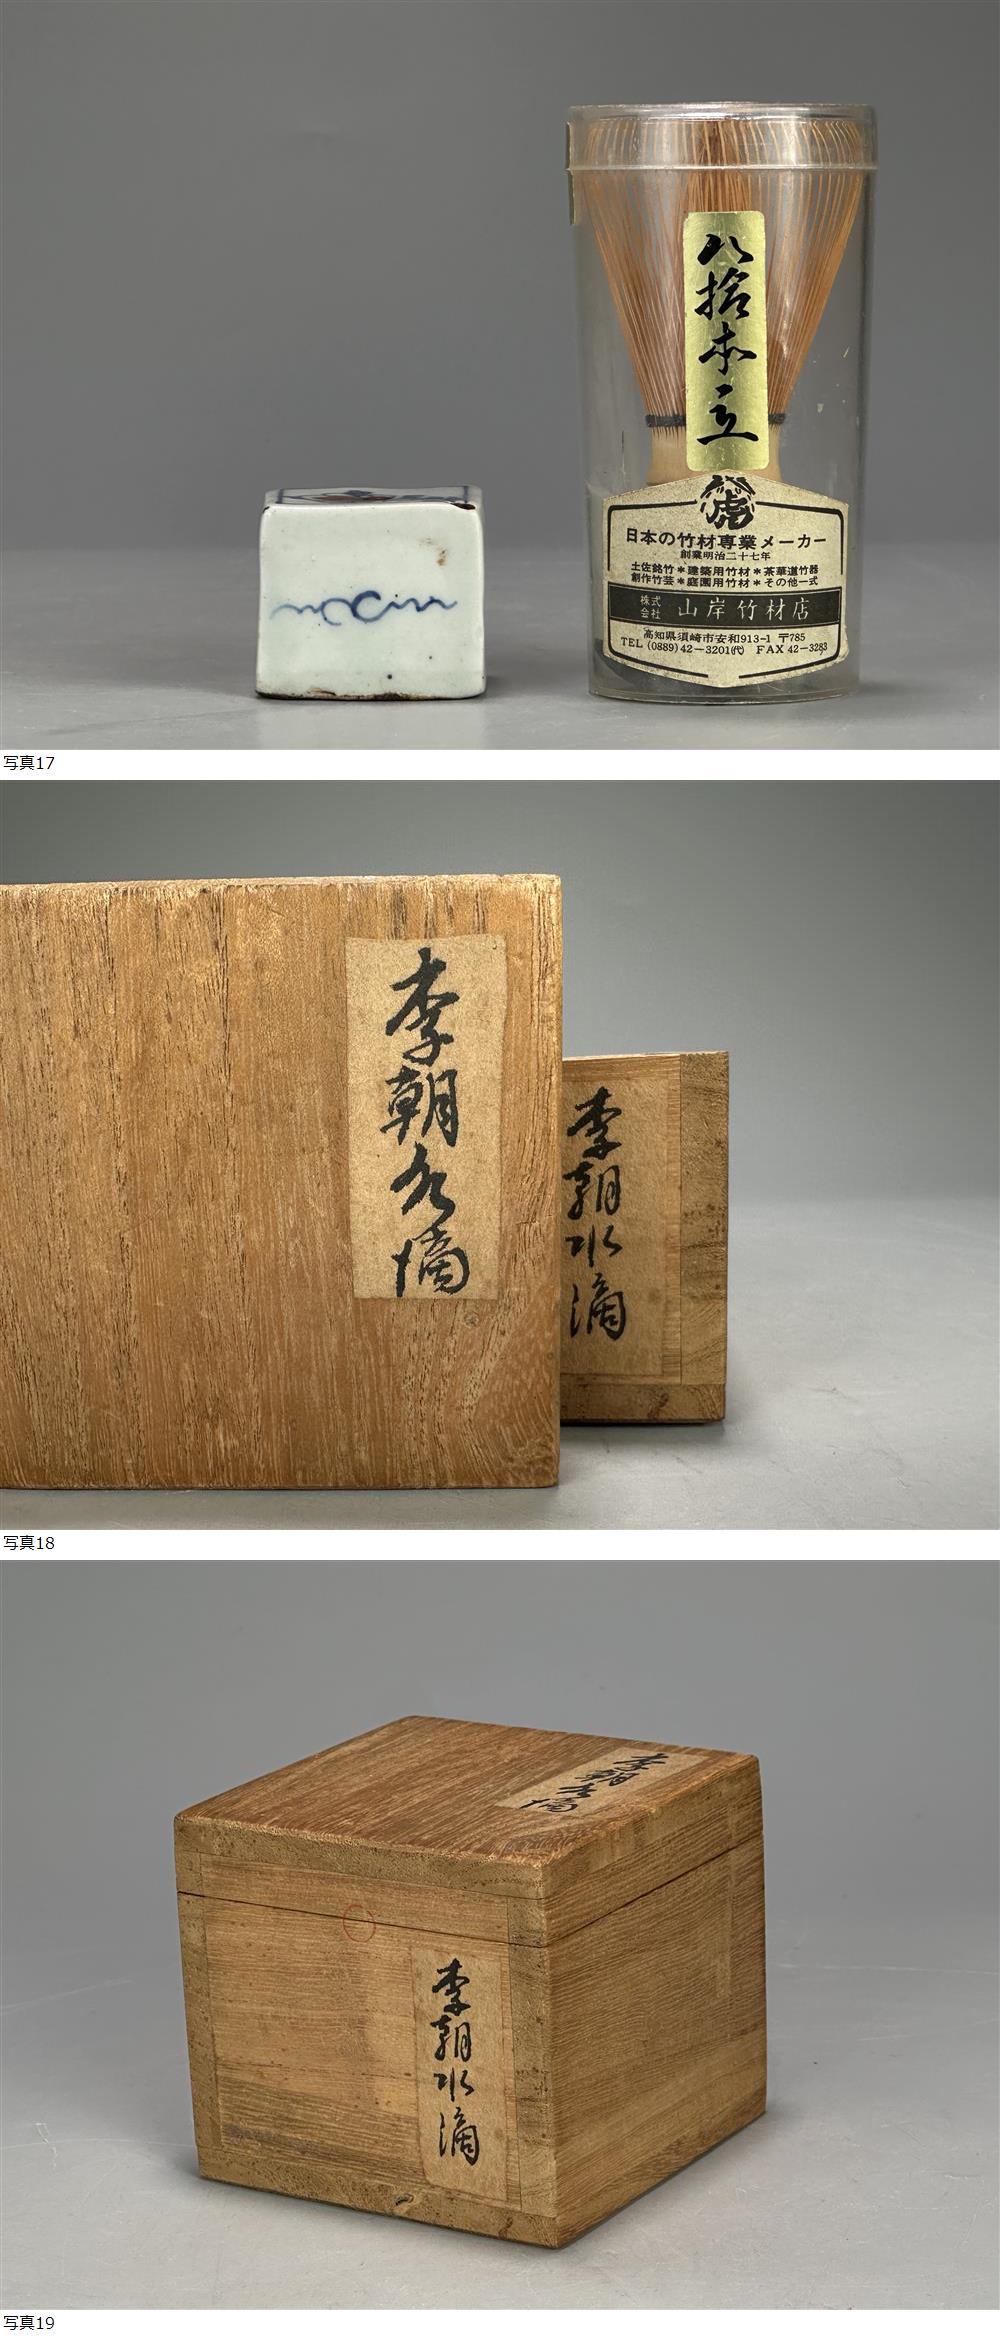 八拾本立
虎
日本の竹材専業メーカー
創業明治二十七年
土佐銘竹＊建築用竹材＊茶華道竹器
創作竹芸＊庭園用竹材＊その他一式
株式会社 山岸竹材店
高知県須崎市安和913-1 〒785
TEL (0889)42-3201(代) FAX 42-3283
写真17
李朝水滴
李朝水滴
写真18
李朝水滴
李朝水滴
写真19